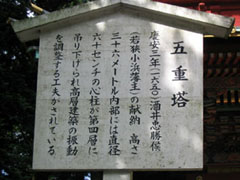 五重塔
慶安三年(一六五〇)酒井忠勝侯
(若狭小浜藩主)の献納 高さ
三十六メートル内部には直径
六十センチの心柱が第四層に
吊り下げられ高層建築の振動
を調整する工夫がされている